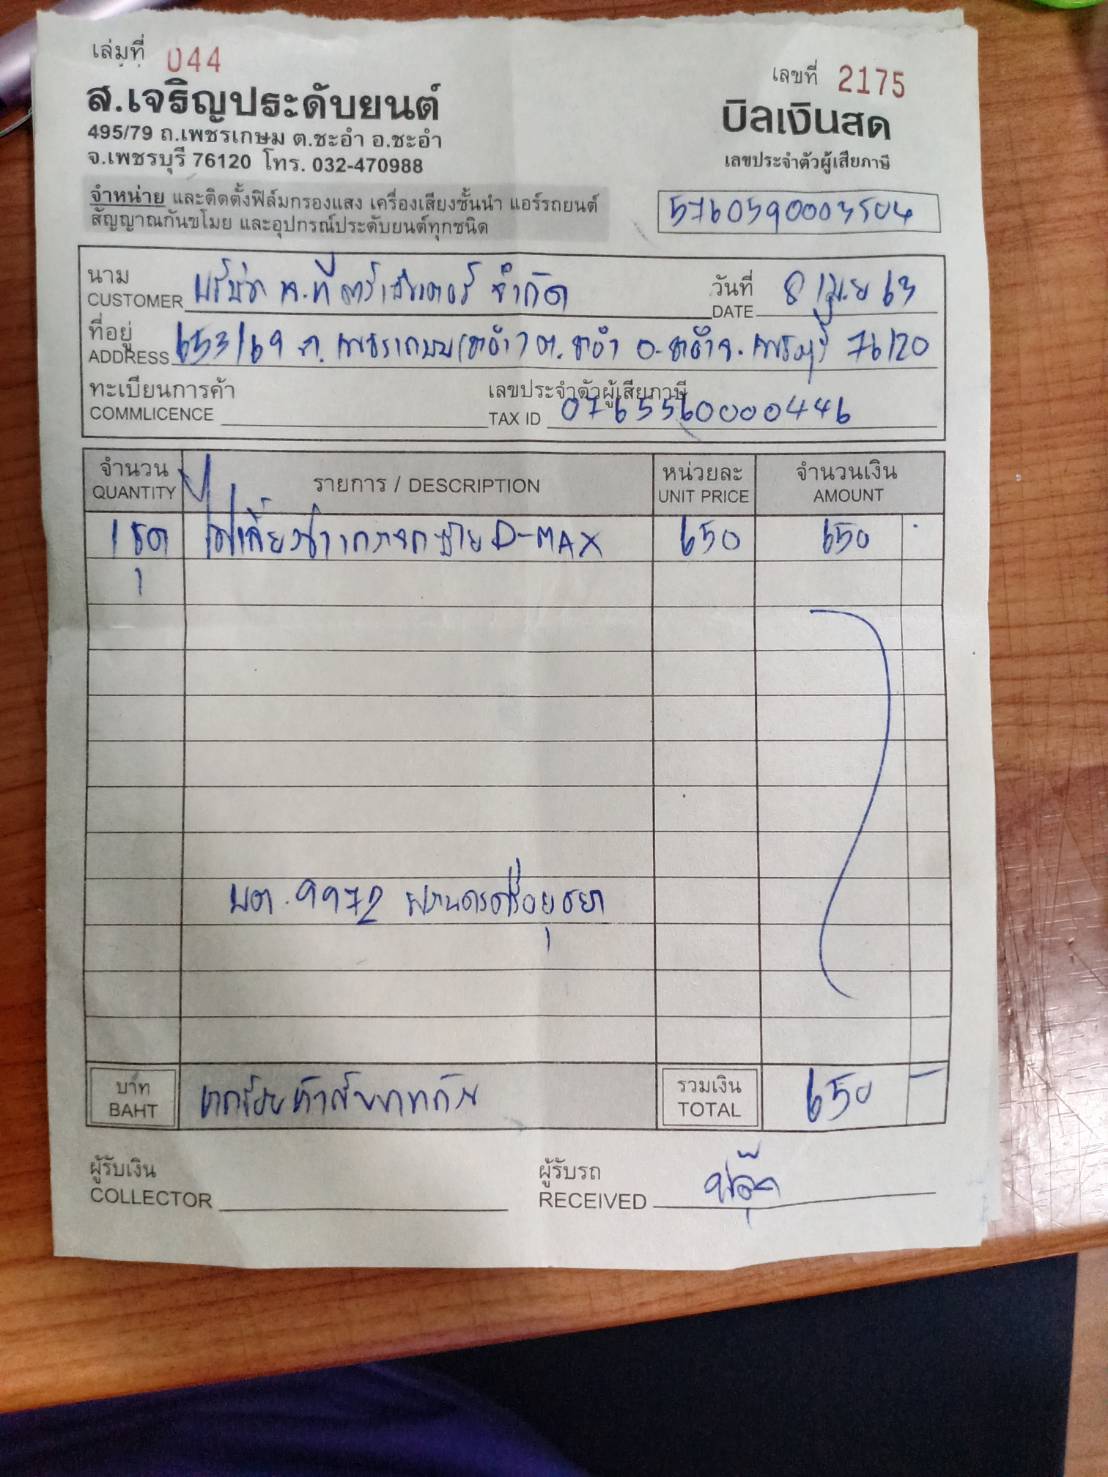 เล่มที่ 044
เลขที่ 2175
ส.เจริญประดับยนต์
495/79 ถ.เพชรเกษม ต.ชะอำ อ.ชะอำ
จ.เพชรบุรี 76120 โทร. 032-470988
บิลเงินสด
เลขประจำตัวผู้เสียภาษี
จำหน่าย และติดตั้งฟิล์มกรองแสง เครื่องเสียงชั้นนำ แอร์รถยนต์
สัญญาณกันขโมย และอุปกรณ์ประดับยนต์ทุกชนิด
นาม บริษัท จำกัด วันที่ 8 เม.ย 63
CUSTOMER DATE
ที่อยู่ 653/69 ถ. เพชรเกษม ต. ชะอำ อ. ชะอำ จ. เพชรบุรี 76120
ADDRESS
ทะเบียนการค้า เลขประจำตัวผู้เสียภาษี
COMMLICENCE TAX ID 0765560000446
จำนวน รายการ / DESCRIPTION หน่วยละ จำนวนเงิน
QUANTITY UNIT PRICE AMOUNT
1 ชุด ไฟเลี้ยวข้างกระจกซ้าย D-MAX 650 650
9972 พระนครศรีอยุธยา
บาท หกร้อยห้าสิบบาทถ้วน รวมเงิน 650 -
BAHT TOTAL
ผู้รับเงิน ผู้รับรถ
COLLECTOR RECEIVED